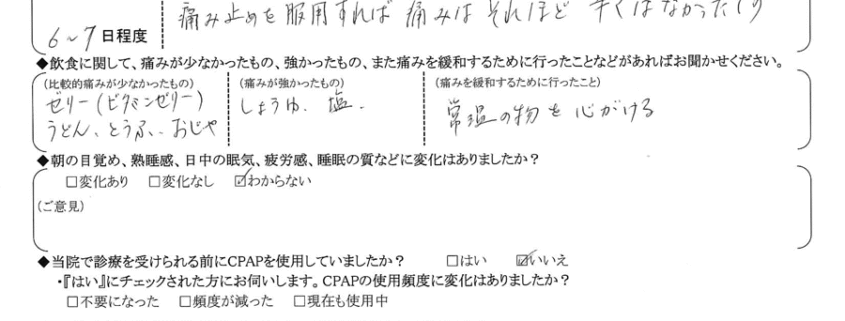 痛み止めを服用すれば 痛みは それほど
6〜7 日程度
◆飲食に関して、痛みが少なかったもの、強かったもの、また痛みを緩和するために行ったことなどがあればお聞かせください。
(比較的痛みが少なかったもの) (痛みが強かったもの) (痛みを緩和するために行ったこと)
ゼリー(ビタミンゼリー) しょうゆ、塩、 常温の物を心がける
うどん、とうふ、おじや
◆朝の目覚め、熟睡感、日中の眠気、疲労感、睡眠の質などに変化はありましたか?
□変化あり □変化なし ☑わからない
(ご意見)
◆当院で診療を受けられる前にCPAPを使用していましたか? □はい ☑いいえ
・『はい』にチェックされた方にお伺いします。CPAPの使用頻度に変化はありましたか?
□不要になった □頻度が減った □現在も使用中